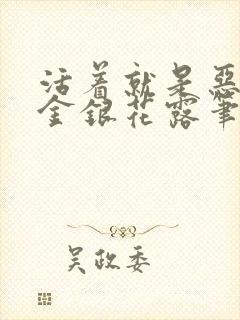 活着就是恶
金银花露笔
吴政委